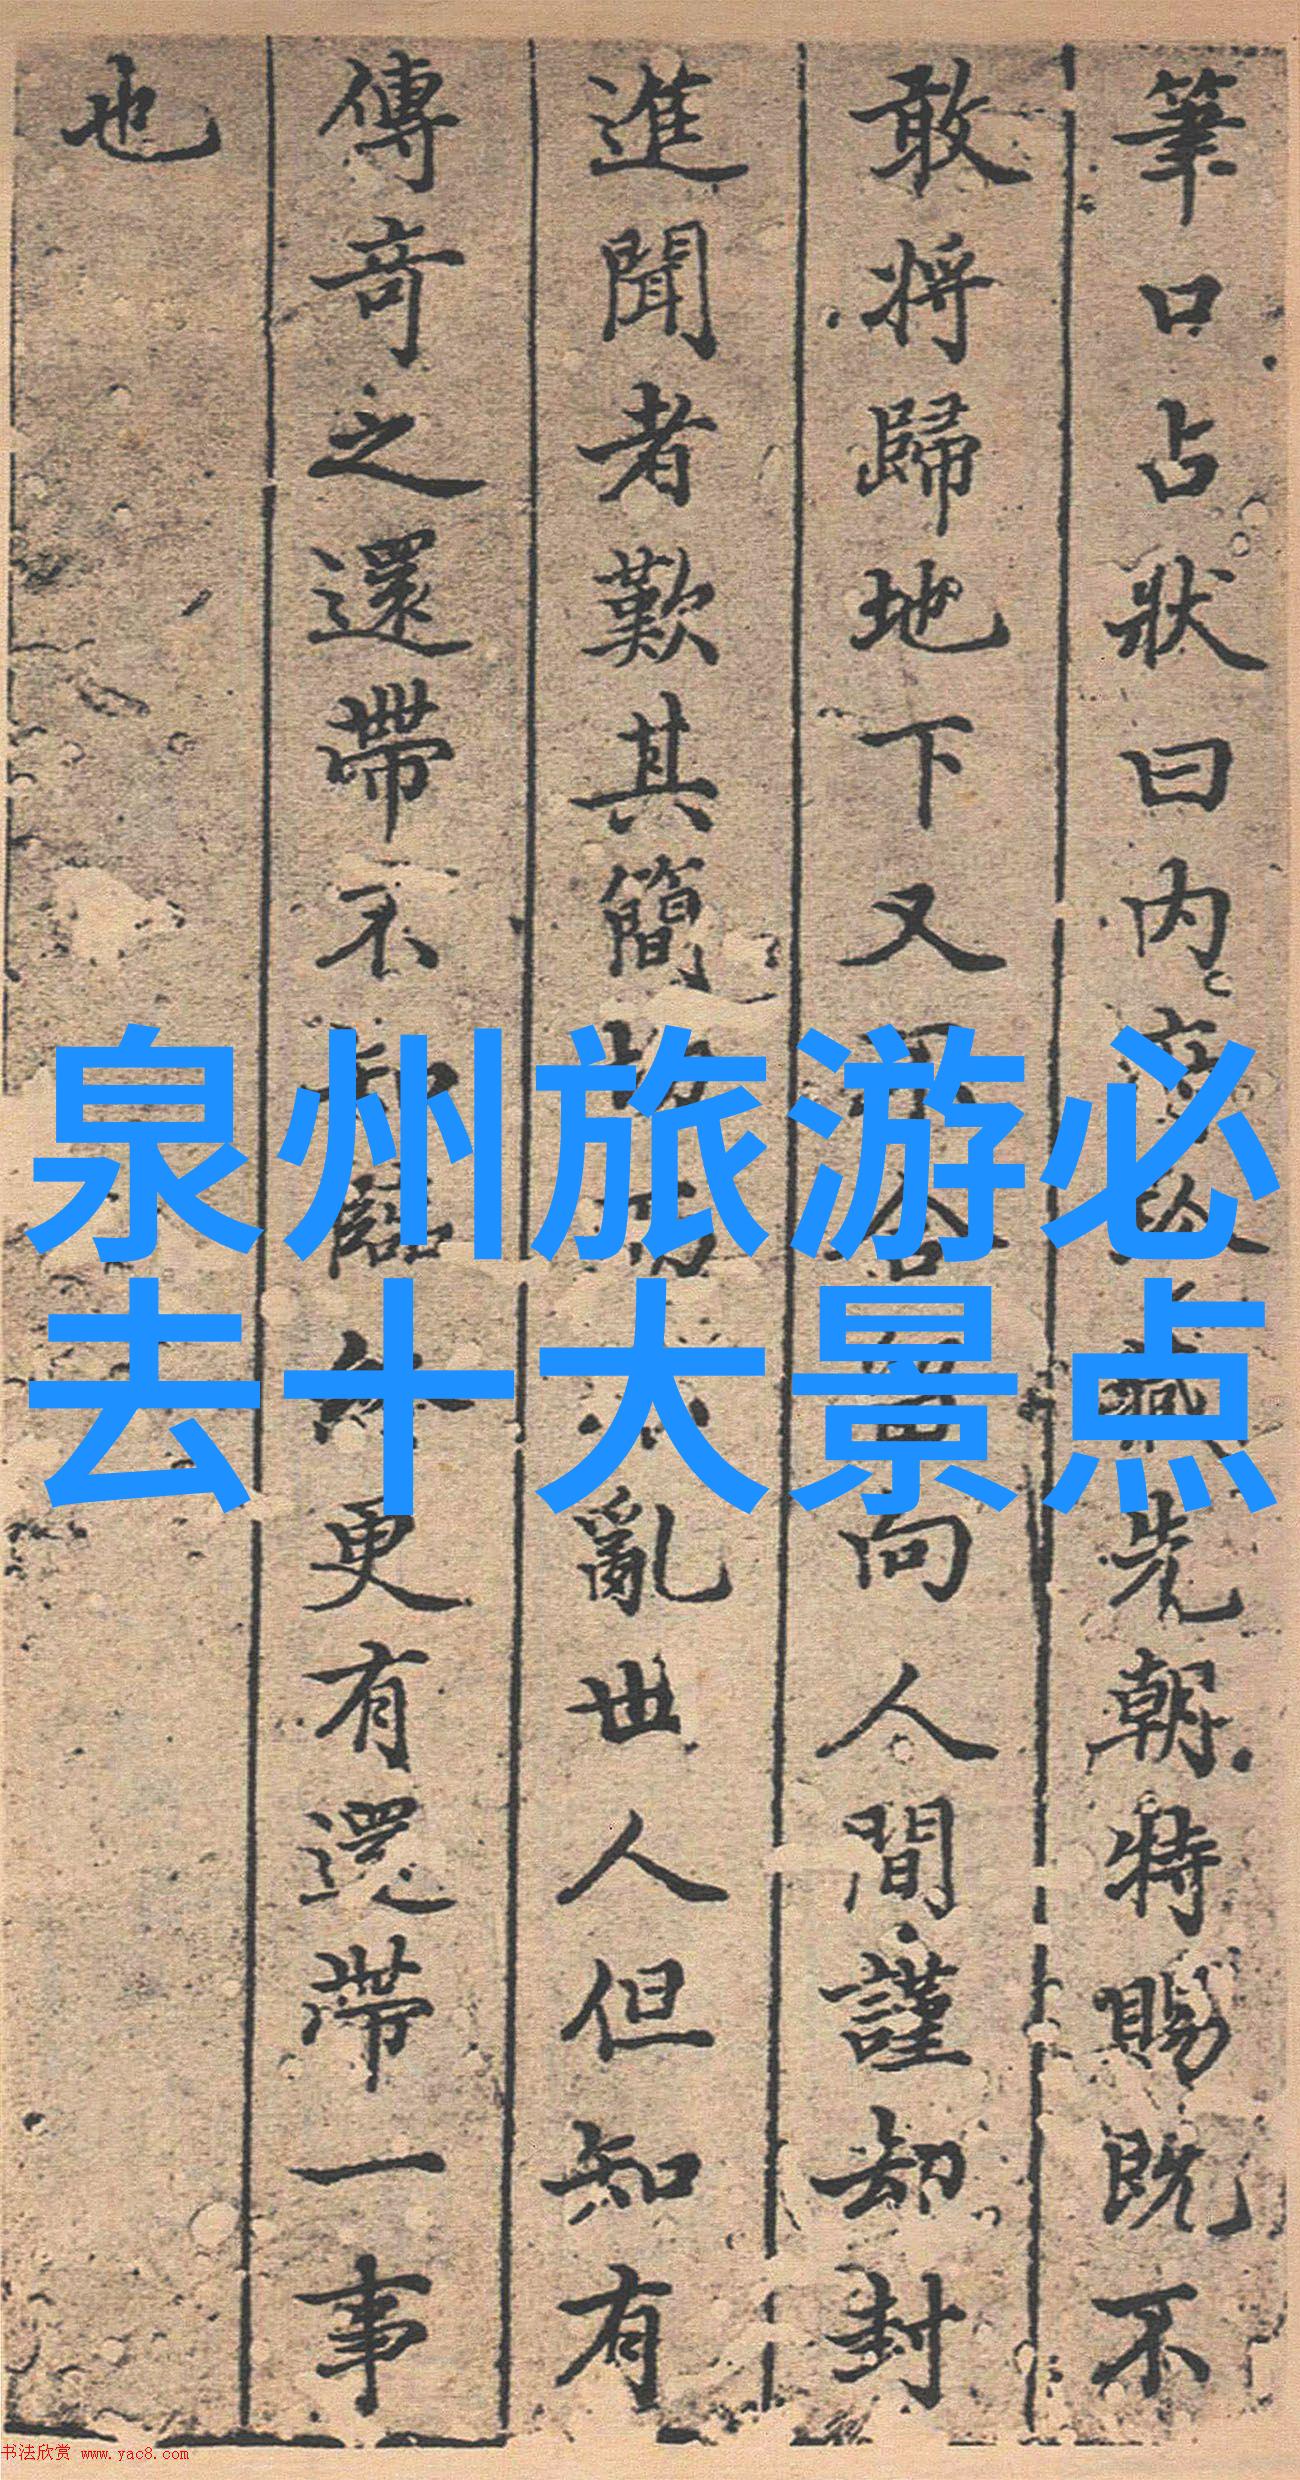 筆口占狀曰內府⿰先朝特賜既不
敢將歸地下又不合留向人間謹却封
進聞者歎其簡㧞而不亂世人但知有
傳奇之還帶不知臨終更有還帶一事
也
泉州旅游必
去十大景点
书法欣赏 www.yac8.com